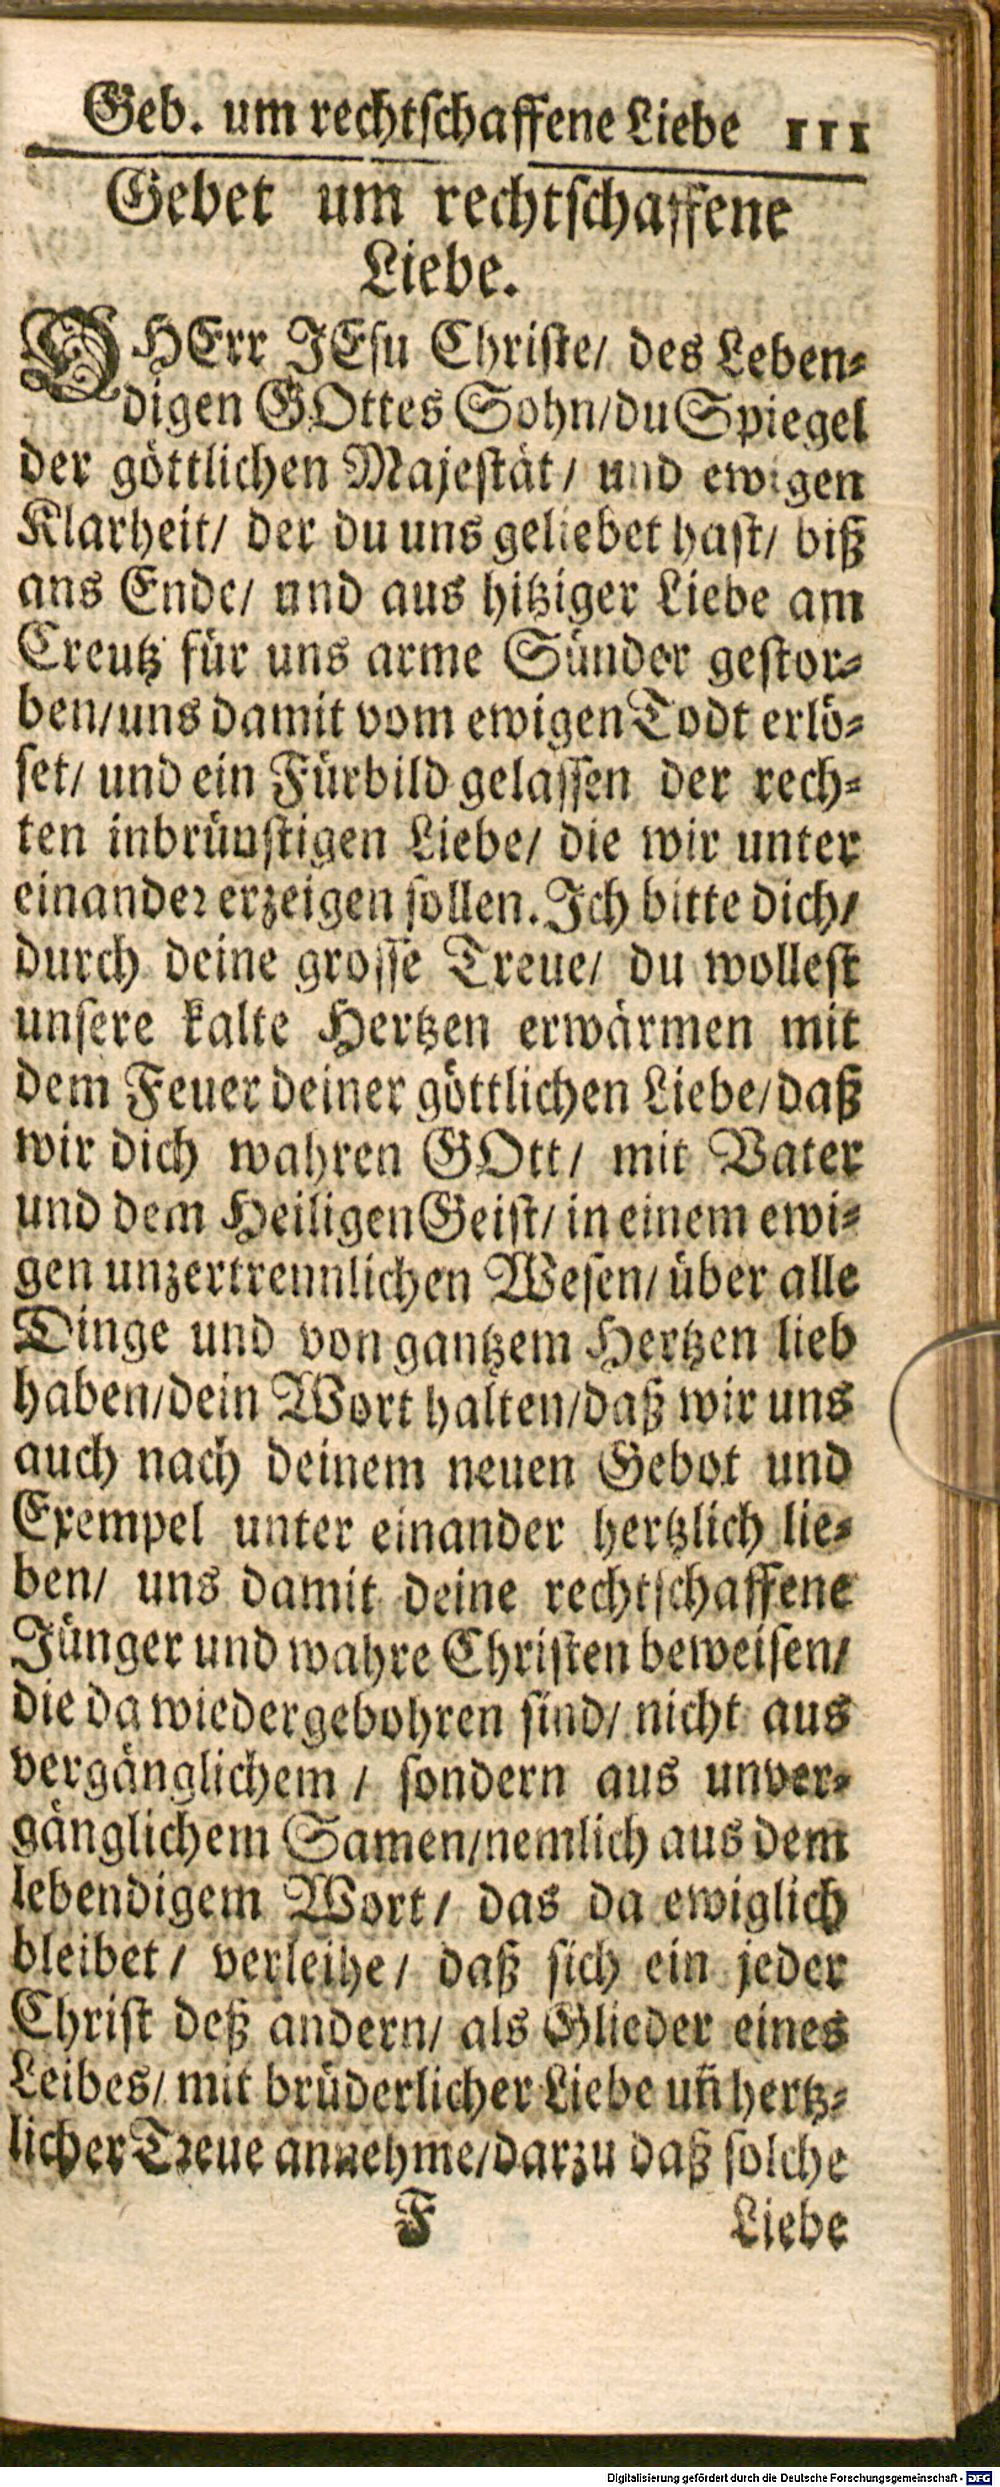 Geb. um rechtschaffene Liebe 111
Gebet um rechtschaffene
Liebe.
O HErr JEsu Christe/ des Leben-
digen GOttes Sohn/du Spiegel
der göttlichen Majestät/ und ewigen
Klarheit/ der du uns geliebet hast/ biß
ans Ende/ und aus hitziger Liebe am
Creutz für uns arme Sünder gestor-
ben/uns damit vom ewigen Todt erlö-
set/ und ein Fürbild gelassen der rech-
ten inbrünstigen Liebe/ die wir unter
einander erzeigen sollen. Ich bitte dich/
durch deine grosse Treue/ du wollest
unsere kalte Hertzen erwärmen mit
dem Feuer deiner göttlichen Liebe/daß
wir dich wahren GOtt/ mit Vater
und dem Heiligen Geist/ in einem ewi-
gen unzertrennlichen Wesen/ über alle
Dinge und von gantzem Hertzen lieb
haben/dein Wort halten/daß wir uns
auch nach deinem neuen Gebot und
Exempel unter einander hertzlich lie-
ben/ uns damit deine rechtschaffene
Jünger und wahre Christen beweisen/
die da wiedergebohren sind/ nicht aus
vergänglichem / sondern aus unver-
gänglichem Samen/nemlich aus dem
lebendigem Wort/ das da ewiglich
bleibet/ verleihe/ daß sich ein jeder
Christ deß andern/ als Glieder eines
Leibes/ mit brüderlicher Liebe uñ hertz-
licher Treue annehme/darzu daß solche
F Liebe
Digitalisierung gefördert durch die Deutsche Forschungsgemeinschaft - DFG